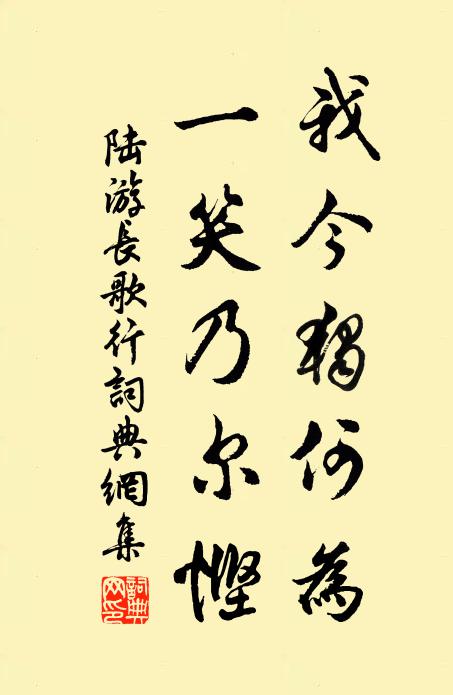 我今獨何為
一笑乃尔慳
陆游長歌行詞典網集
詞典网印